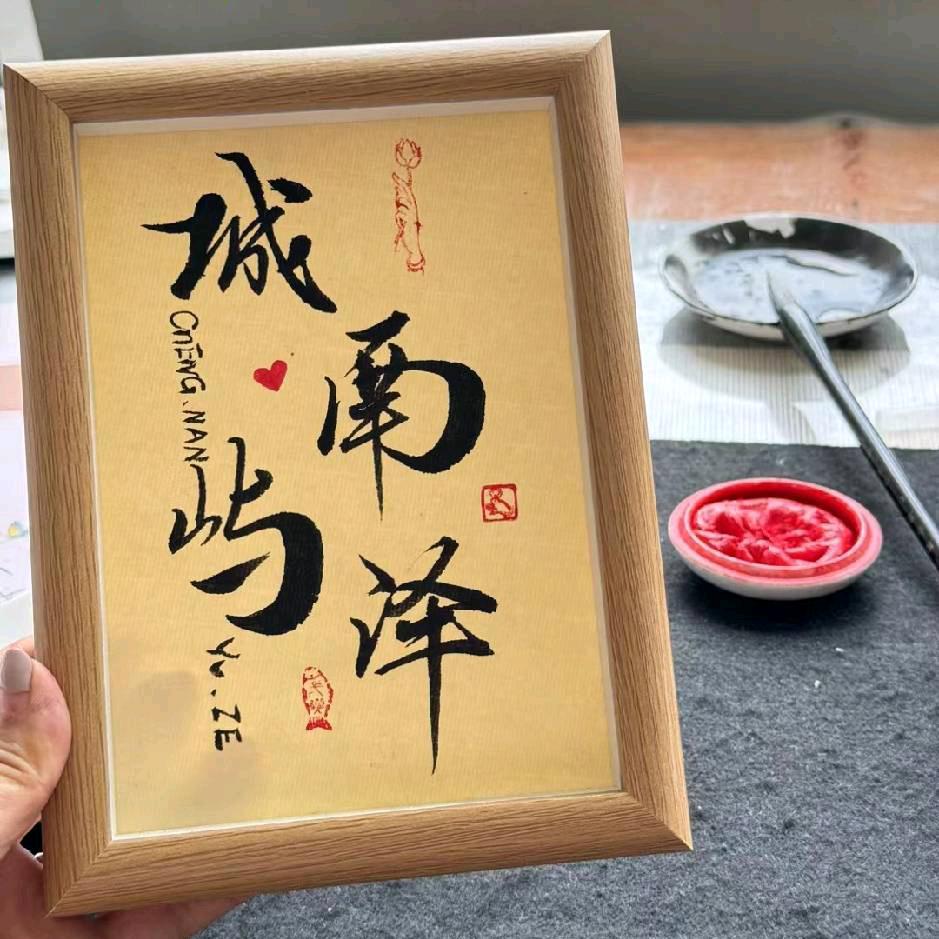 城
南
CHENG.NAN
屿
泽
YU.ZE